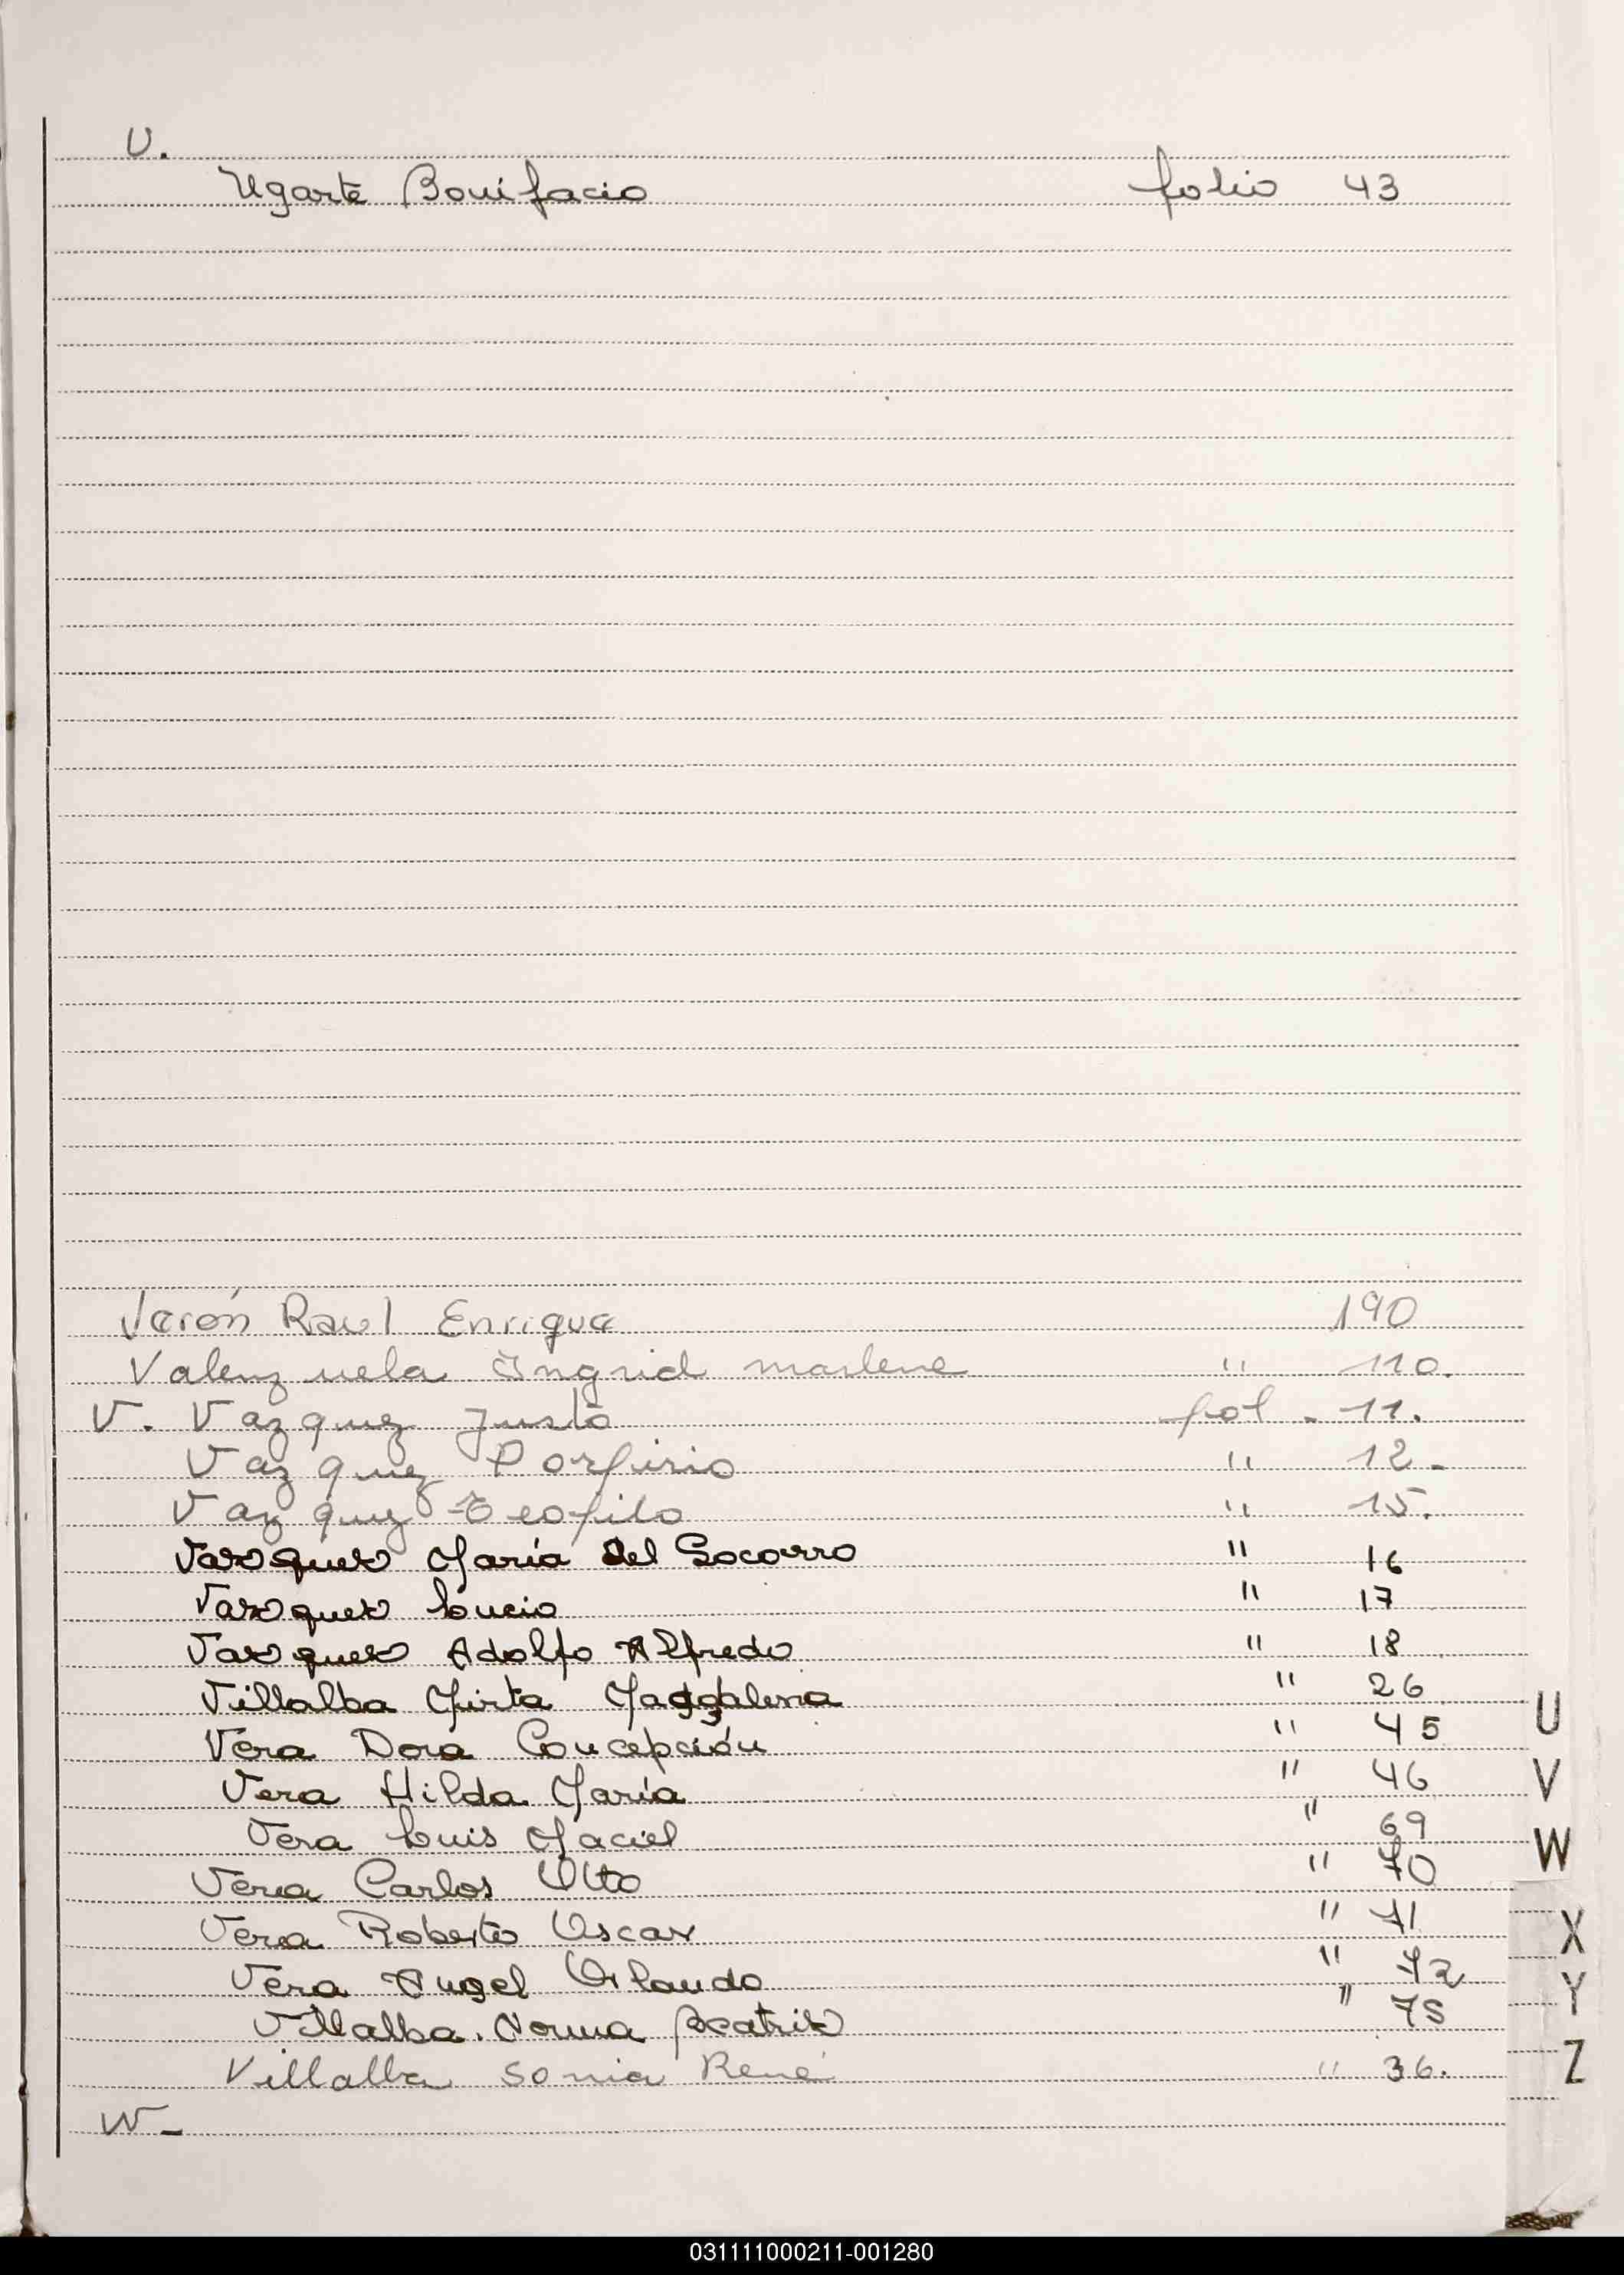 U.
Ugarte Bonifacio folio 43
Verón Raul Enrique 190
Valenzuela Ingrid marlene " 110.
V. Vazquez Justo fol. 11.
Vazquez Porfirio " 12.
Vazquez Teofilo " 15.
Vazquez María del Socorro " 16
Vazquez Lucio " 17
Vazquez Adolfo Alfredo " 18
Villalba Mirta Magdalena " 26
Vera Dora Concepción " 45
Vera Hilda María " 46
Vera Luis Maciel " 69
Vera Carlos Otto " 70
Vera Roberto Oscar " 71
Vera Angel Orlando " 72
Villalba Norma Beatriz " 75
Villalba Sonia René " 36.
W-
U
V
W
X
Y
Z
031111000211-001280